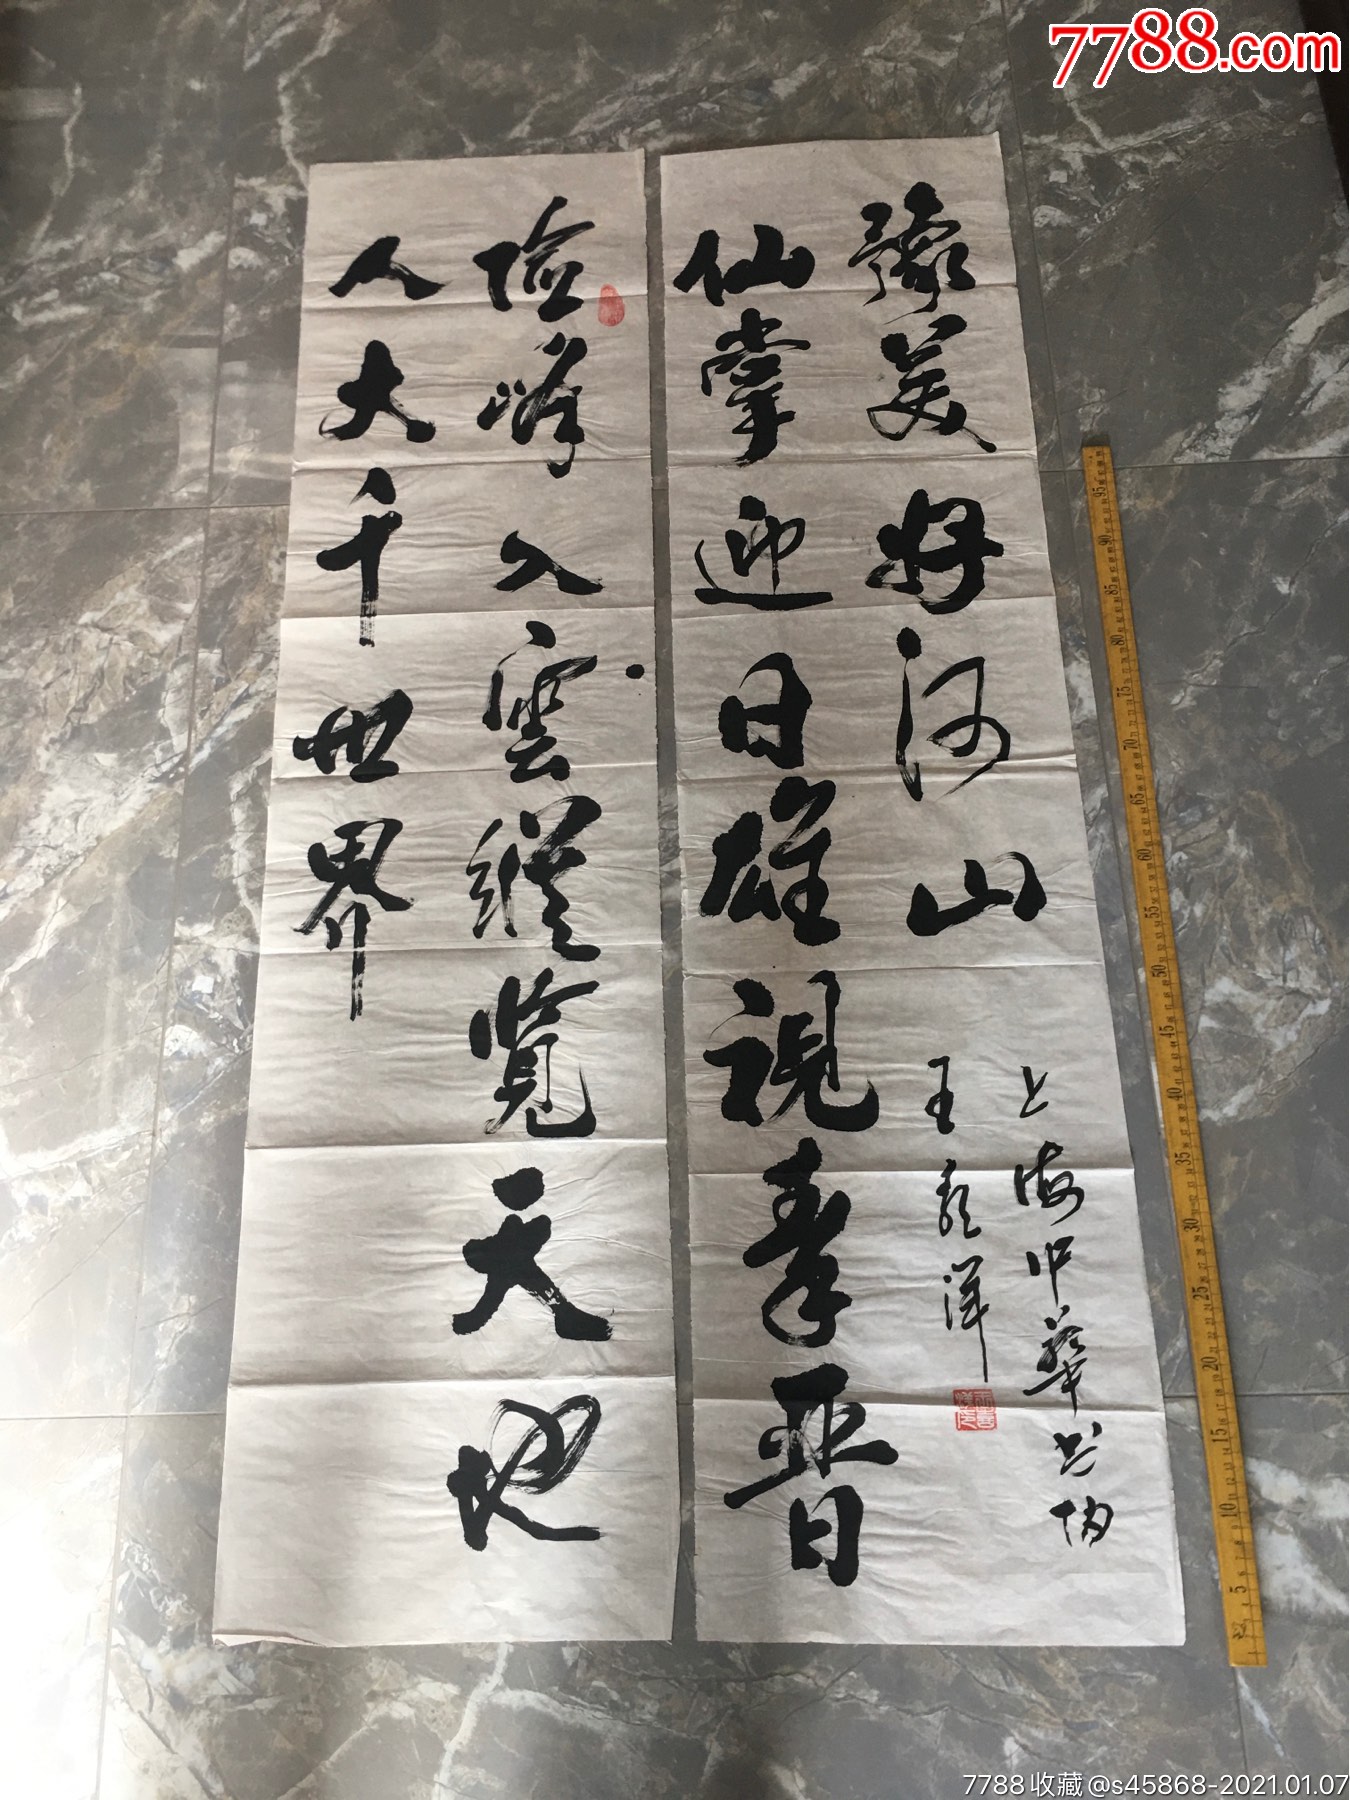 7788.com
险峰入雲縱覽天地
人大千世界
仙掌迎日雄視秦晋
豫美好河山
上海中華书
王
7788收藏@s45868-2021.01.07